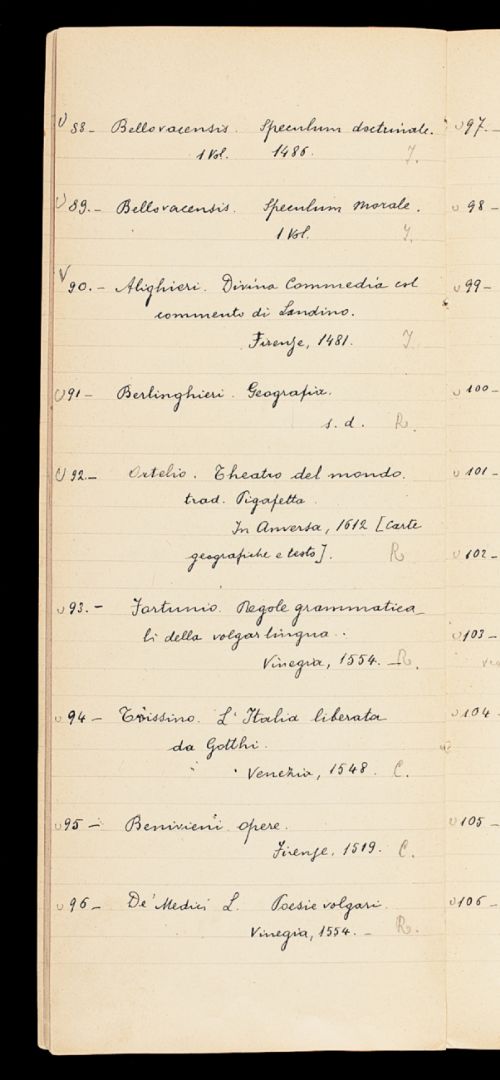 88- Bellovacensis. Speculum doctrinale.
1 Vol. 1486. I.
89.- Bellovacensis. Speculum Morale.
1 Vol. I.
V
90.- Alighieri. Divina Commedia col
commento di Landino.
Firenze, 1481. I
91- Berlinghieri. Geografia.
s. d. R.
92.- Ortelio. Theatro del mondo.
trad. Pigafetta.
In Anversa, 1612 [Carte
geografiche e testo]. R
93.- Fortunio. Regole grammatica-
li della volgar lingua.
Vinegia, 1554. - R.
94- Trissino. L'Italia liberata
da Gotthi.
Venezia, 1548. C.
95- Benivieni opere.
Firenze, 1519. C.
96- De' Medici L. Poesie volgari.
Vinegia, 1554. - R.
97.-
98-
99-
100-
101-
102-
103-
104-
105-
106-